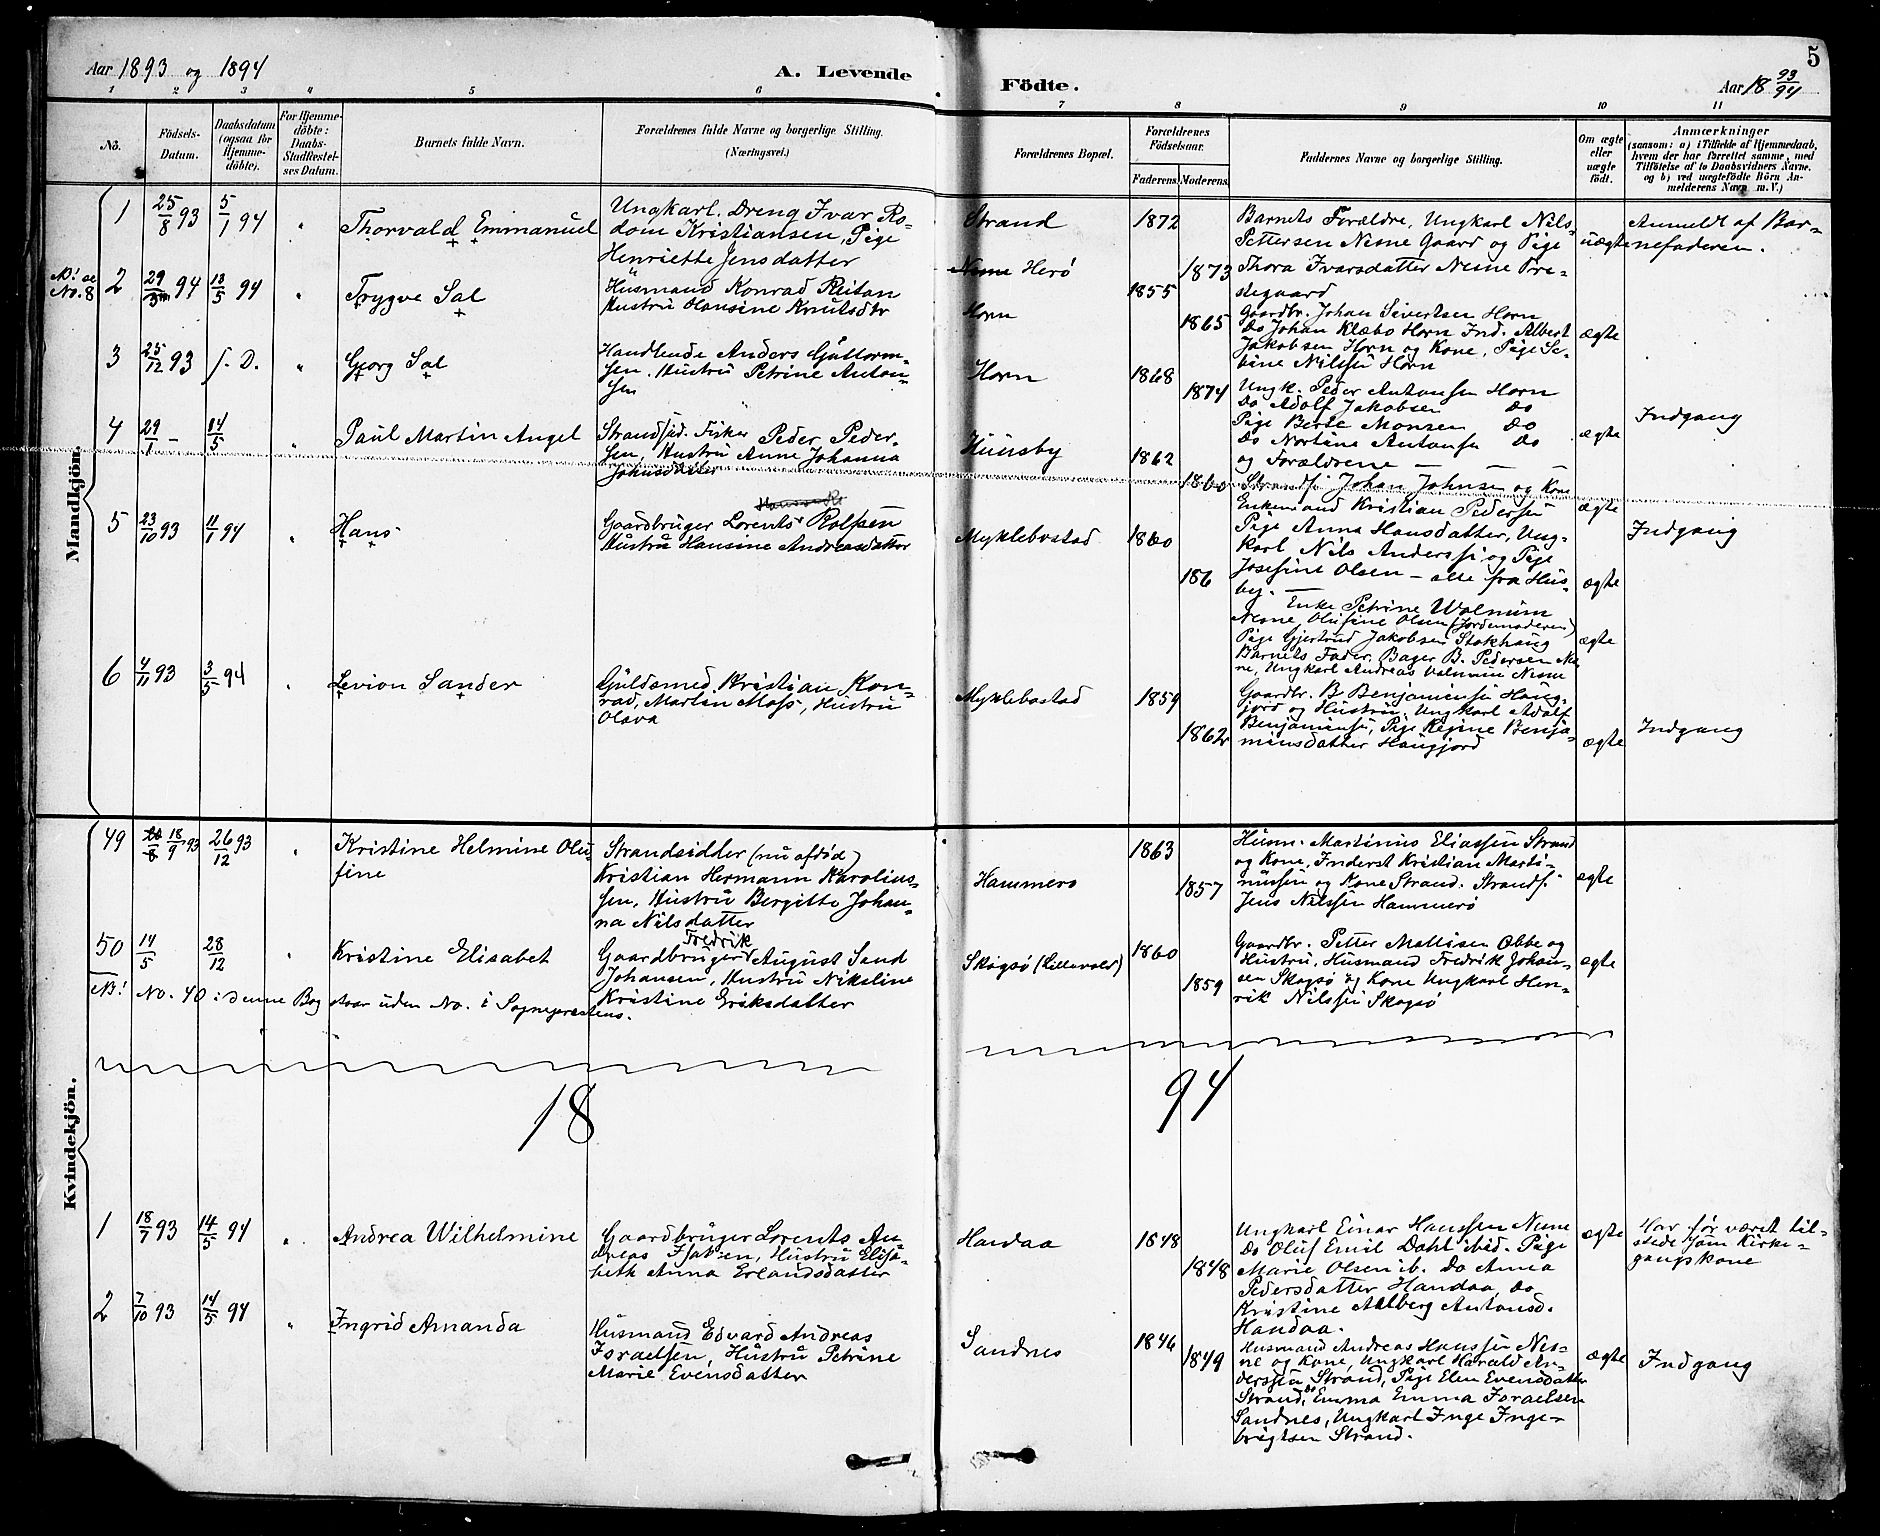 Aar 1893 og 1894
A. Levende
Födte.
5
Aar 18 93/94
1 2 3 4 5 6 7 8 9 10 11
No.
Födsels-
Datum.
Daabsdatum
(ogsaa för
Hjemme-
döbte).
For Hjemme-
döbte:
Daabs-
Stadfæstel-
ses Datum.
Barnets fulde Navn.
Forældrenes fulde Navne og borgerlige Stilling.
(Næringsvei.)
Forældrenes Bopæl.
Forældrenes
Födselsaar.
Faderens.
Moderens.
Faddernes Navne og borgerlige Stilling.
Om ægte
eller
uægte
födt.
Anmærkninger
(saasom: a) i Tilfælde af Hjemmedaab,
hvem der har forrettet samme, med
Tilföielse af to Daabsvidners Navne,
og b) ved uægtefödte Börn An-
melderens Navn m. V.)
Mandkjön.
1
25/8 93
5/1 94
"
Thorvald Emmanuel
Ungkarl. Dreng Ivar Ro-
dom Kristiansen, Pige
Henriette Jensdatter
Strand
Nesne Herö
1872
1873
Barnets Forældre, Ungkarl Nils
Pettersen Nesne Gaard og Pige
Thora Ivarsdatter Nesne Pre-
stegaard
uægte
Anmeldt af Bar-
nefaderen.
No. 8
2
29/3 94
13/5 94
"
Trygve Sal
Husmand Konrad Reitan
Hustru Hansine Knutsdtr
Horn
1855
1865
Gaardbr. Johan Sivertsen Horn
Do Johan Klæbo Horn Ind. Albert
Jakobsen Horn og Kone, Pige Se-
rine Nilssen Horn
ægte
3
25/12 93
s. D.
"
Georg Sal
Handlende Anders Guttorm-
sen, Hustru Petrine Anton-
sen
Horn
1868
1874
Ungk. Peder Antonsen Horn
Do Adolf Jakobsen Do
Pige Berte Monsen Do
Do Nortine Antonsen Do
og Forældrene — — —
ægte
Indgang
4
29/1 -
14/5
"
Paul Martin Angel
Strandsid. Fisker Peder Peder-
sen, Hustru Anne Johanna
Johnsdatter
Huusby
1862
1860
Strands. Johan Johnsen og Kone
Enkemand Kristian Pedersen
Pige Anna Hansdatter, Ung-
karl Nils Anderss. og Pige
Josefine Olsen — alle fra Hus-
by. —
ægte
Indgang
5
23/10 93
11/1 94
"
Hans
Gaardbruger Lorents Rolfsen
Hustru Hansine Andreasdatter
Myklebostad
1860
186
Enke Petrine Walnum
Nesne, Olufine Olsen (Jordemoderen)
Pige Gjertrud Jakobsen Stokhaug
Barnets Fader. Bager B. Pedersen Nes-
ne, Ungkarl Andreas Valnum Nesne
ægte
ægte
6
4/11 93
3/5 94
"
Levion Sander
Guldsmed Kristian Kon-
rad, Martin Moss, Hustru
Olava
Myklebostad
1859
1862
Gaardbr. B. Benjaminsen Haug-
jord og Hustru, Ungkarl Adolf
Benjaminsen, Pige Regine Benja-
minsdatter Haugjord
ægte
Indgang
Kvindekjön.
49
18/9 93
26/12 93
"
Kristine Helmine Olu-
fine
Strandsidder (nu afdöd)
Kristian Hermann Karolius-
sen, Hustru Bergitte Johan-
na Nilsdatter
Hammerö
1863
1857
Husm. Martinus Eliassen Strand
og Kone, Inderst Kristian Marti-
nussen og Kone Strand. Strands.
Jens Nilssen Hammerö
ægte
50
14/5
28/12
"
Kristine Elisabet
Fredrik
Gaardbruger August Sand
Johansen, Hustru Nikoline
Kristine Eriksdatter
Skogsö (Lillevold)
1860
1859
Gaardbr. Petter Mattisen Obbe og
Hustru, Husmand Fredrik Johan-
sen Skogsö og Kone Ungkarl Hen-
rik Nilssen Skogsö
ægte
NB! No. 40 i denne Bog staar uden No. i Sogneprestens.
18 94
1
18/7 93
14/5 94
"
Andrea Wilhelmine
Gaardbruger Lorents An-
dreas Isaksen, Hustru Elisa-
beth Anna Erlandsdatter
Handaa
1848
1848
Ungkarl Einar Hanssen Nesne
Do Oluf Emil Dahl ibid. Pige
Marie Olsen ib. Do Anna
Pedersdatter Handaa Do
Kristine Aalberg Antonsd.
Handaa.
ægte
Har för været til-
stede som Kirke-
gangskone
2
7/10 93
14/5 94
"
Ingrid Amanda
Husmand Edvard Andreas
Israelsen, Hustru Petrine
Marie Evensdatter
Sandnes
1846
1849
Husmand Andreas Hanssen Nes-
ne og Kone, Ungkarl Harald An-
derssen Strand, Pige Elen Evensdatter
Strand, Do Emma Emma Israelsen
Sandnes, Ungkarl Inge Inge-
brigtsen Strand.
ægte
Indgang